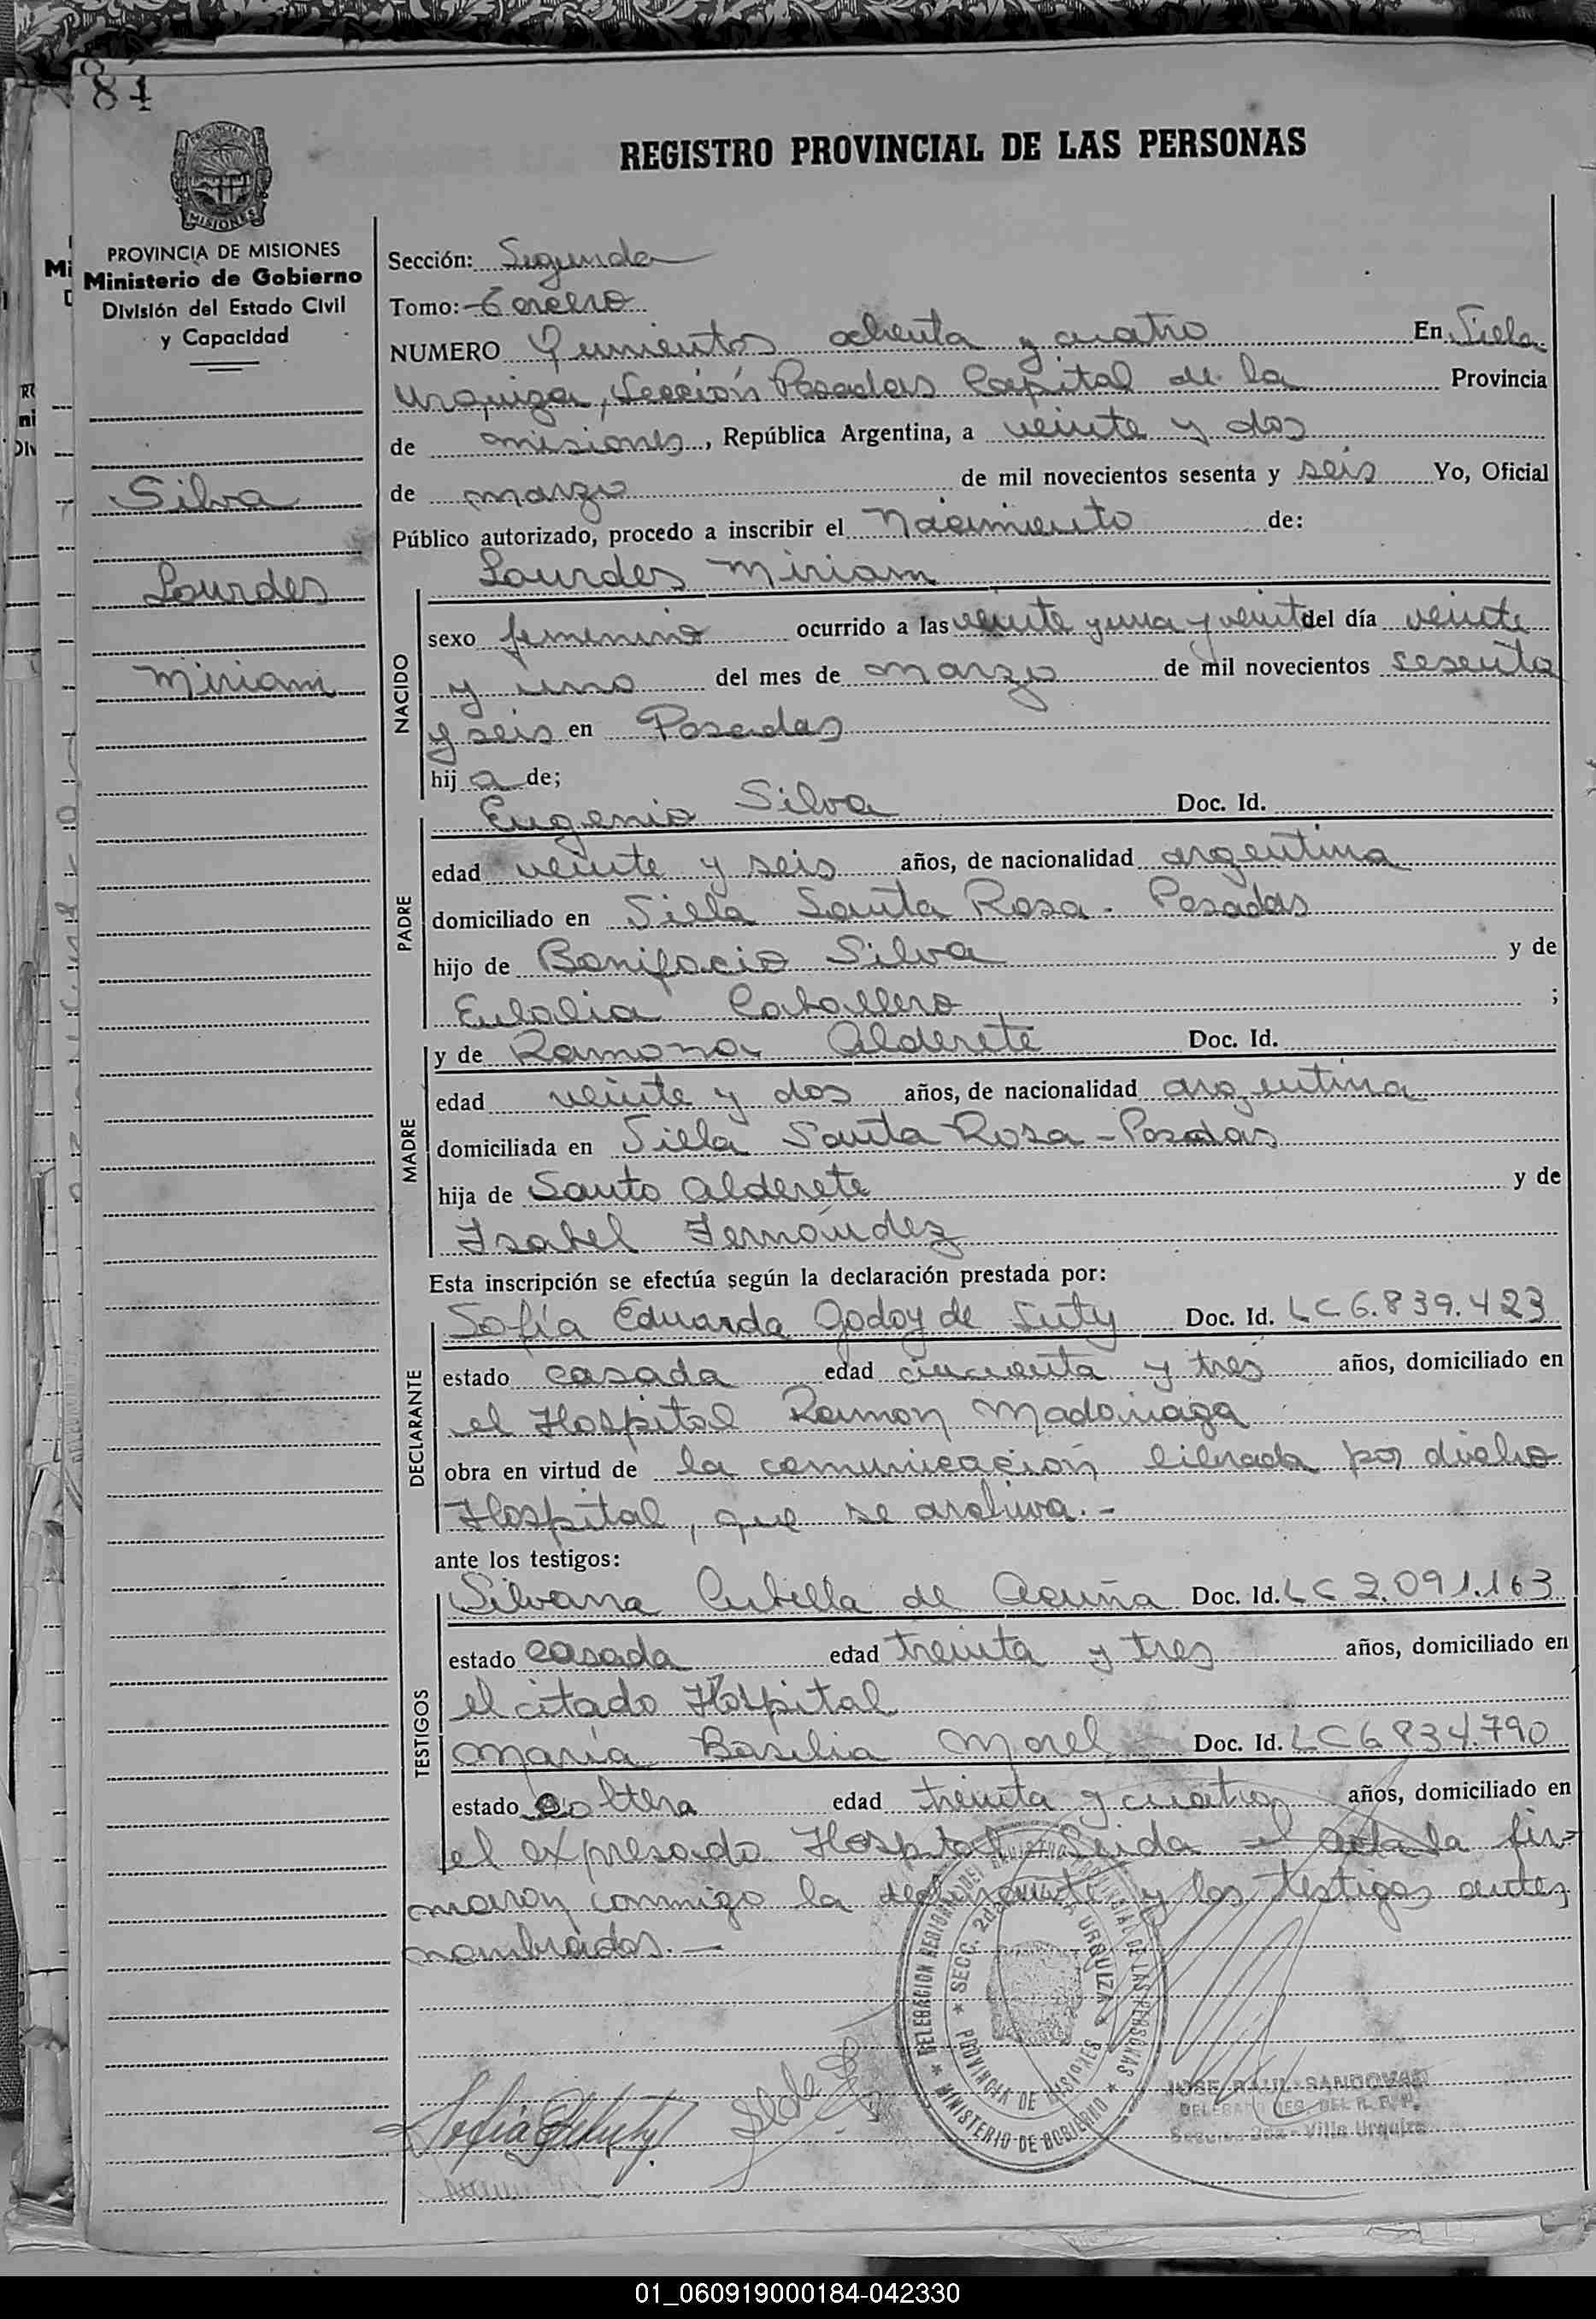 84
REGISTRO PROVINCIAL DE LAS PERSONAS
MISIONES
PROVINCIA DE MISIONES
Ministerio de Gobierno
División del Estado Civil
y Capacidad
Silva
Lourdes
Miriam
Sección: Segunda
Tomo: Tercero
NUMERO Quinientos ochenta y cuatro En Villa
Urquiza, Sección Posadas Capital de la Provincia
de misiones, República Argentina, a veinte y dos
de marzo de mil novecientos sesenta y seis Yo, Oficial
Público autorizado, procedo a inscribir el Nacimiento de:
Lourdes Miriam
NACIDO
sexo femenino ocurrido a las veinte y una y veinte del día veinte
y uno del mes de marzo de mil novecientos sesenta
y seis en Posadas
hij a de;
PADRE
Eugenio Silva Doc. Id.
edad veinte y seis años, de nacionalidad argentina
domiciliado en Villa Santa Rosa - Posadas
hijo de Bonifacio Silva y de
Eulalia Caballero ;
MADRE
y de Ramona Alderete Doc. Id.
edad veinte y dos años, de nacionalidad argentina
domiciliada en Villa Santa Rosa - Posadas
hija de Santo Alderete y de
Isabel Fernández
Esta inscripción se efectúa según la declaración prestada por:
DECLARANTE
Sofía Eduarda Godoy de Doc. Id. LC 6.839.423
estado casada edad cincuenta y tres años, domiciliado en
el Hospital Ramon Madariaga
obra en virtud de la comunicación librada por dicho
Hospital, que se archiva.-
ante los testigos:
TESTIGOS
Silvana Cubilla de Acuña Doc. Id. LC 2.091.163
estado casada edad treinta y tres años, domiciliado en
el citado Hospital
María Basilia Morel Doc. Id. LC 6.834.790
estado soltera edad treinta y cuatro años, domiciliado en
el expresado Hospital Leida el acta la fir-
maron conmigo la declarante y los testigos antes
nombrados.-
DELEGACION REGIONAL DEL REGISTRO PROVINCIAL DE LAS PERSONAS
MINISTERIO DE GOBIERNO
SECC. 2da. VILLA URQUIZA
PROVINCIA DE MISIONES
JOSE RAUL SANDOVAL
DELEGADO REG. DEL R. P. P.
Sección 2da - Villa Urquiza
01_060919000184-042330